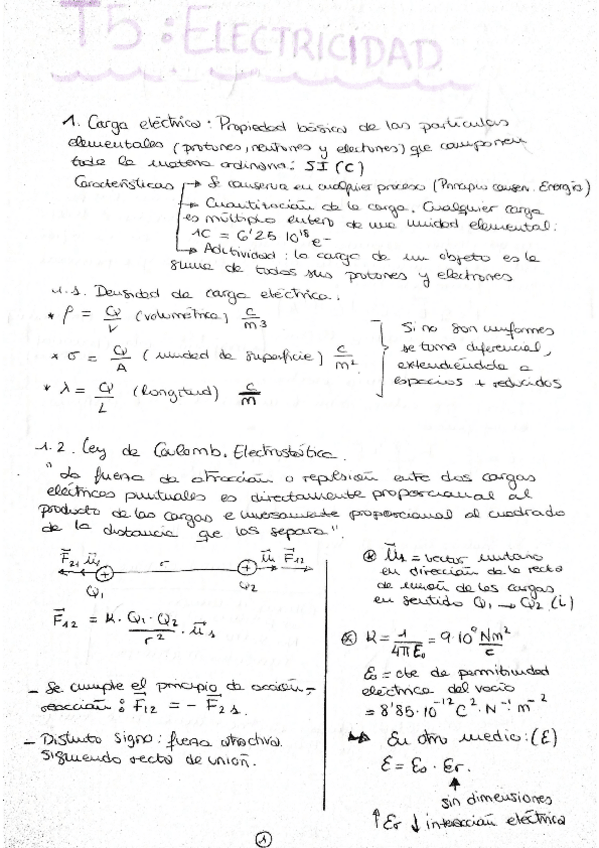 T5: ELECTRICIDAD
1. Carga eléctrica: Propiedad básica de las partículas
elementales (protones, neutrones y electrones) que componen
toda la materia ordinaria: SI (C)
Características → Se conserva en cualquier proceso (Principio conser. Energía)
→ Cuantización de la carga. Cualquier carga
es múltiplo entero de una unidad elemental:
1C = 6'25 10¹⁸ e⁻
→ Aditividad: la carga de un objeto es la
suma de todos sus protones y electrones
1.1. Densidad de carga eléctrica.
* ρ = Q/V (volumétrica) C/m³
* σ = Q/A (unidad de superficie) C/m²
* λ = Q/L (longitud) C/m
Si no son uniformes
se toma diferencial,
extendiéndola a
espacios + reducidos
1.2. Ley de Coulomb. Electrostática.
"La fuerza de atracción o repulsión entre dos cargas
eléctricas puntuales es directamente proporcional al
producto de las cargas e inversamente proporcional al cuadrado
de la distancia que las separa".
F⃗₂₁ u⃗₁ + r + u⃗₁ F⃗₁₂
Q₁ Q₂
F⃗₁₂ = K · Q₁ · Q₂ / r² · u⃗₁
- Se cumple el principio de acción-
reacción: F⃗₁₂ = - F⃗₂₁.
- Distinto signo: fuerza atractiva.
siguiendo recta de unión.
* u⃗₁ = vector unitario
en dirección de la recta
de unión de las cargas
en sentido Q₁ → Q₂ (i)
* K = 1/4πε₀ = 9·10⁹ Nm²/C
ε₀ = cte de permitividad
eléctrica del vacío
= 8'85·10⁻¹² C²·N⁻¹·m⁻²
↳ En otro medio: (ε)
ε = ε₀ · εr.
↑
sin dimensiones
↑ εr ↓ interacción eléctrica
1